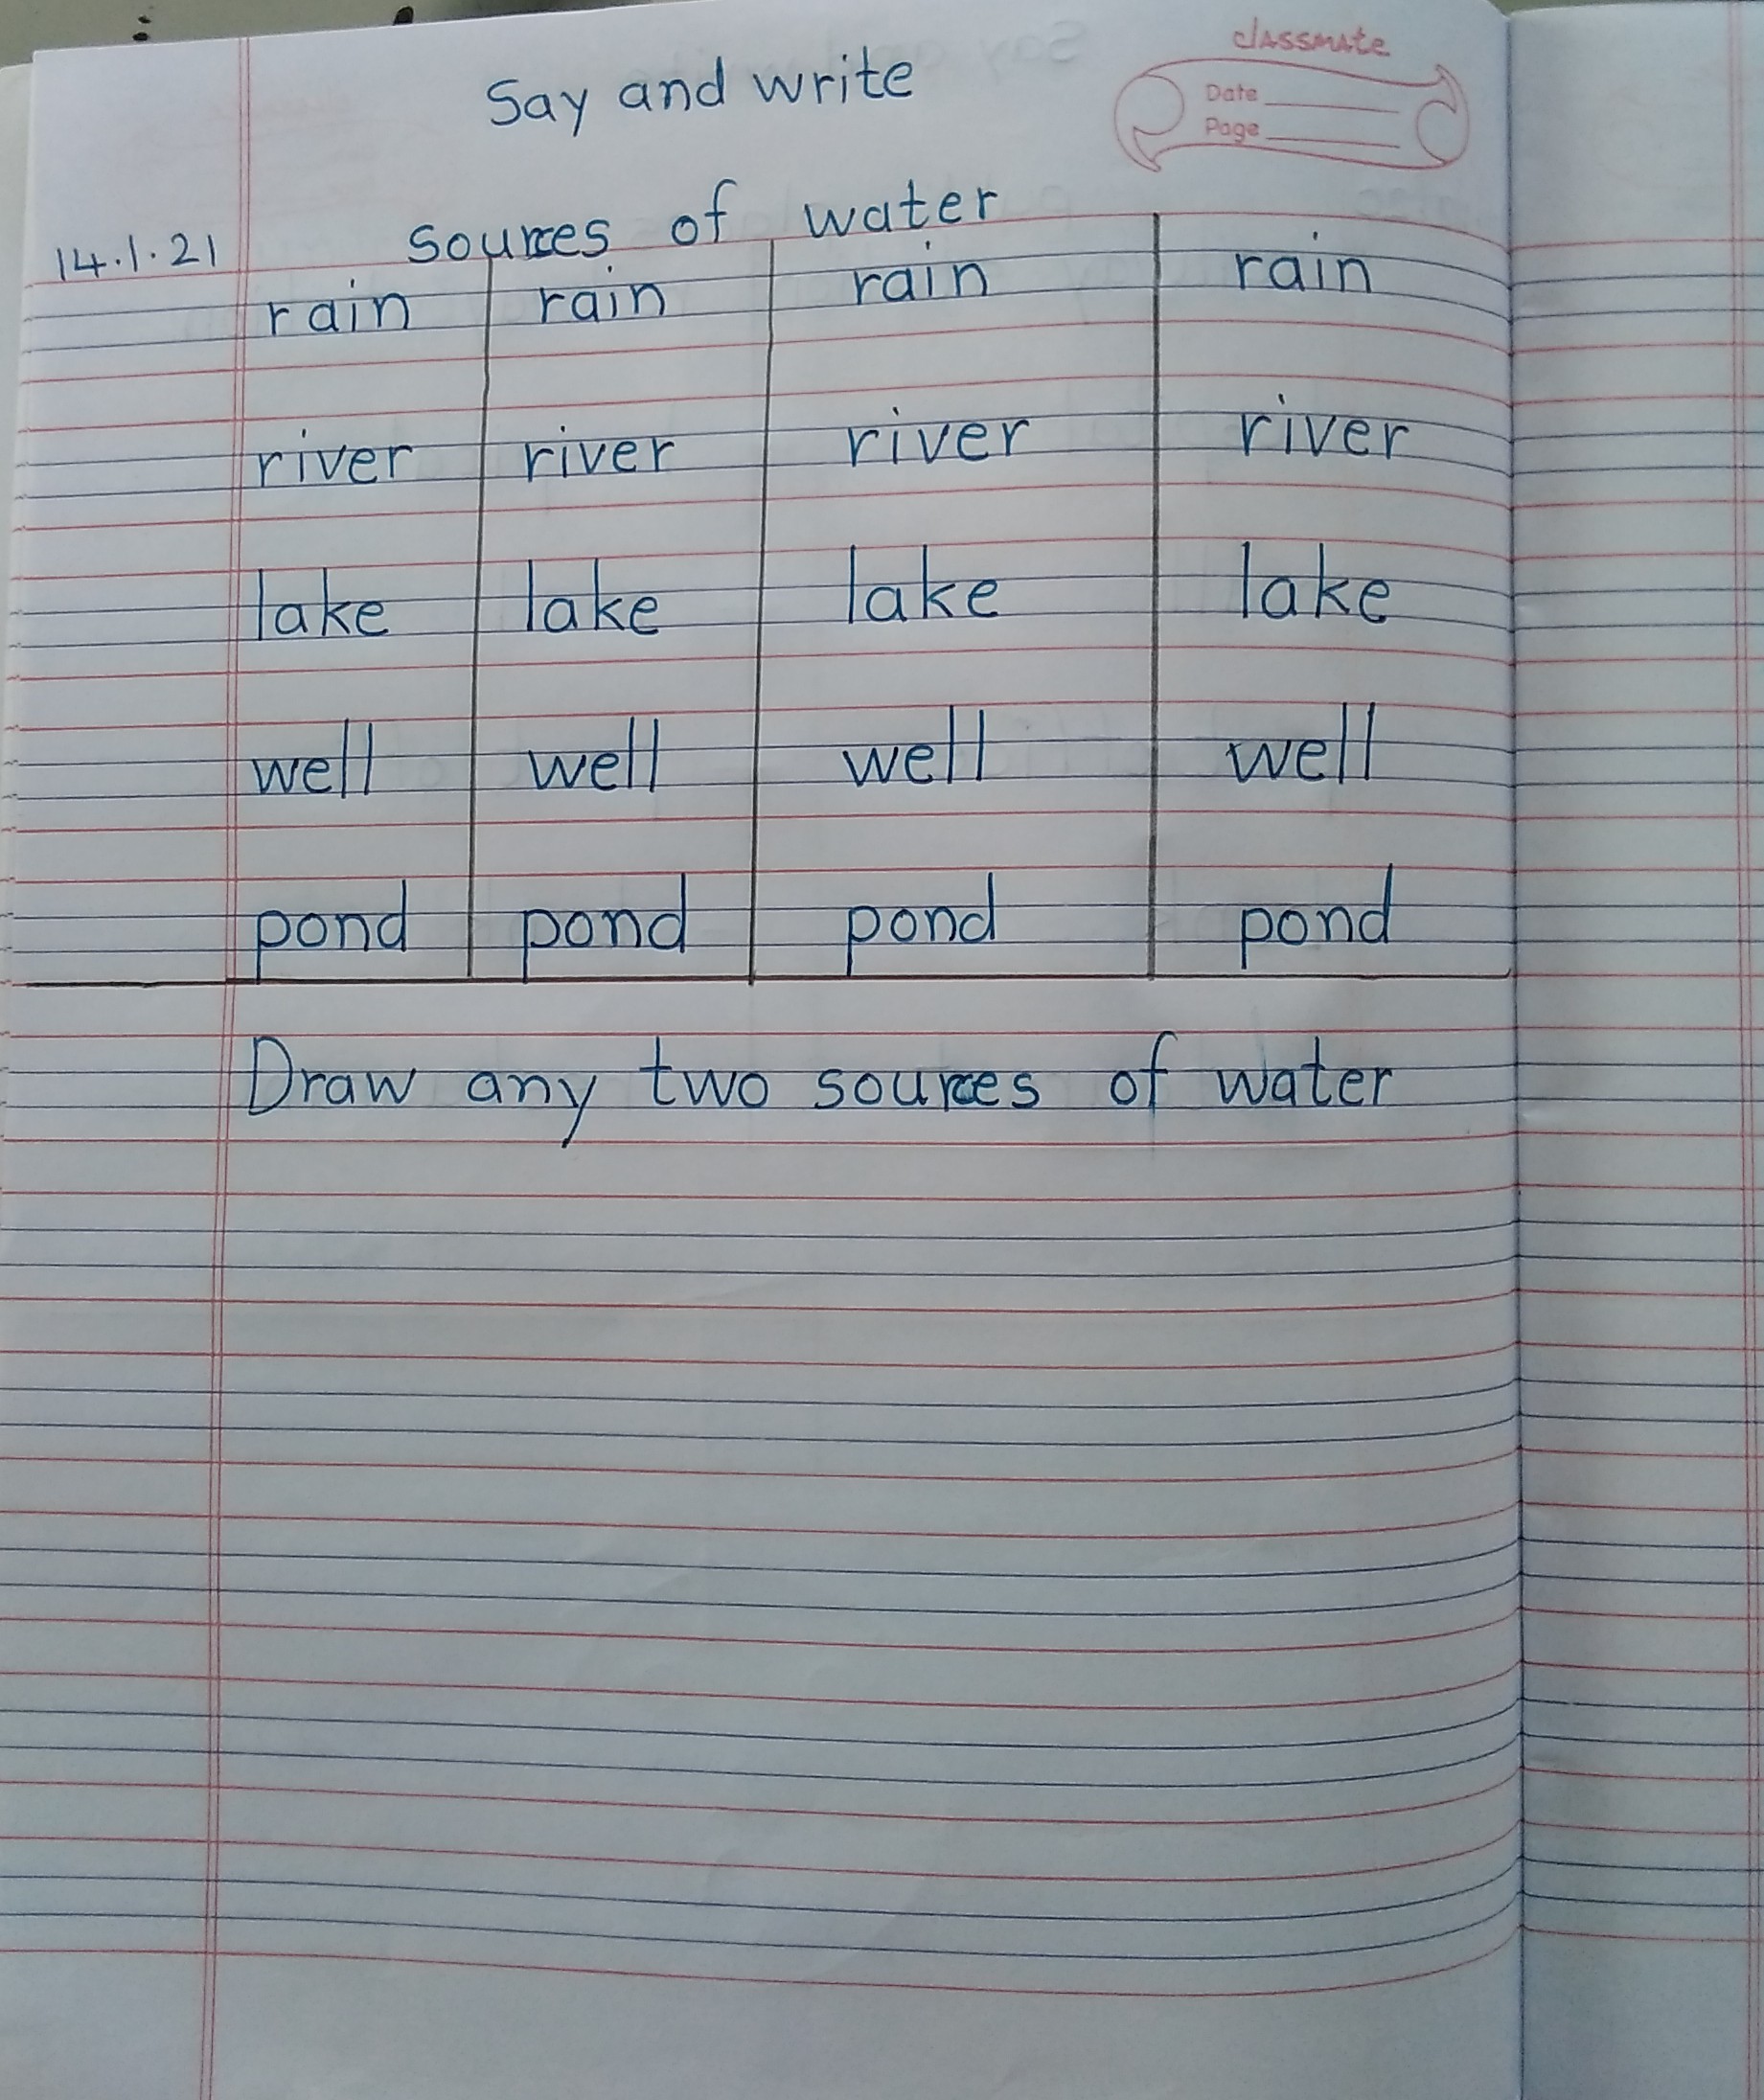 classmate
Say and write
Date
Page
sources of water
14.1.21
rain rain rain rain
river river river river
lake lake lake lake
well well well well
pond pond pond pond
Draw any two sources of water